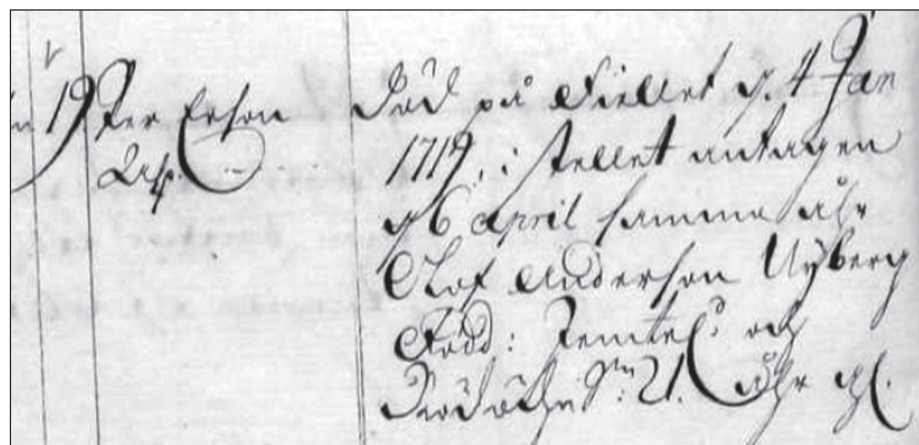 19 Per Erson
Död på Fiellet d. 4 Jan
1719, i stellet antagen
d 6 April samma åhr
Olof Anderson Nyberg
Född: Jemtel. och
21. åhr gl.